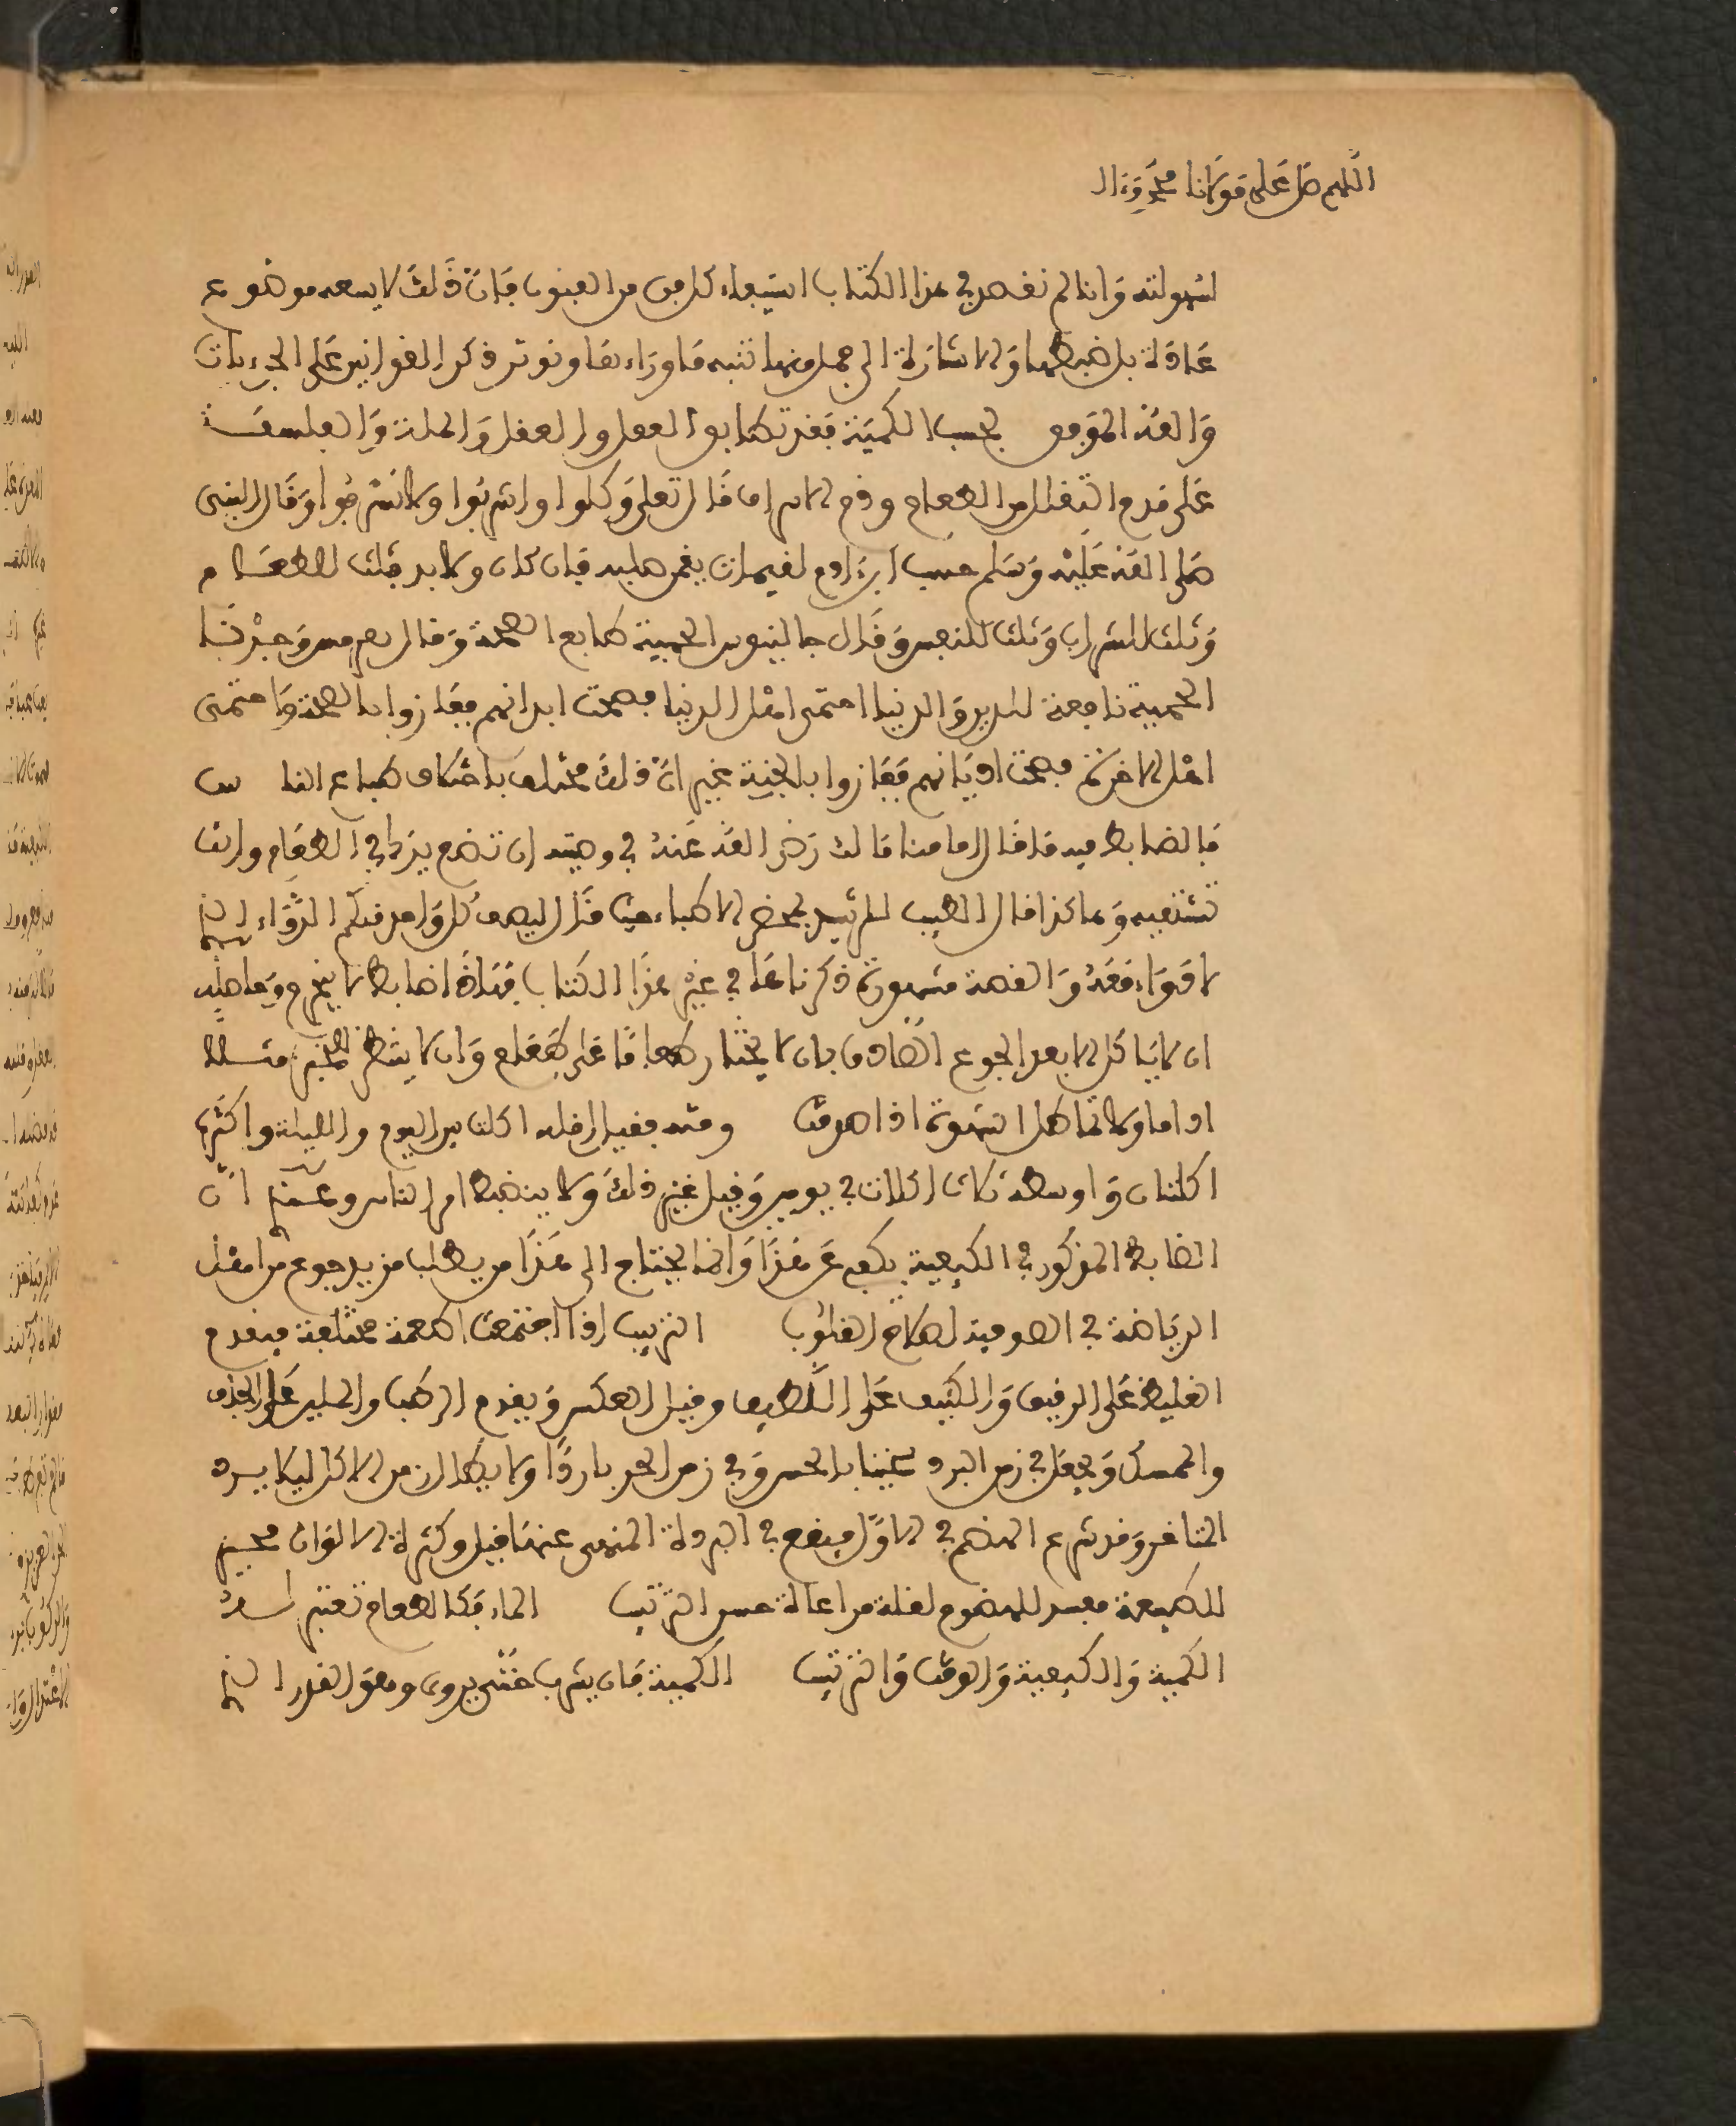 اللهم صل على مولانا محمد وءال
لسهولته وانا لم نقصد في هذا الكتاب استيفاء كل فن من الفنون فان ذلك لا يسعه موضوع
عادة بل ضبطها والاشارة الى جمل منها تنبه ما وراءها ونوثر ذكر القوانين على الجزءيات
والله الموفق بحسب الكمية فقد تطابق العقل والملة والفلسفة
على مدح التقلل من الطعام وذم الاسراف قال تعلى وكلوا واشربوا ولا تسرفوا وقال النبي
صلى الله عليه وسلم حسب ابن ادم لقيمات يقمن صلبه فان كان ولا بد فثلث للطعام
وثلث للشراب وثلث للنفس وقال جالينوس الحمية طابع الصحة وقال بعضهم وجدنا
الحمية نافعة للدين والدنيا احتمى اهل الدنيا فصحت ابدانهم ففازوا بالصحة واحتمى
اهل الاخرة فصحت اديانهم ففازوا بالجنة غير ان ذلك مختلف باختلاف طباع الناس
فالضابط فيه ما قال امامنا مالك رضي الله عنه في وصيته ان تضع يدك في الطعام وانت
تشتهيه وهاكذا قال الطبيب للرشيد بمحضر الاطباء حيث قال ليصف كل واحد منكم الدواء الذي
لا دواء معه والقصة مشهورة ذكرناها في غير هذا الكتاب فهاذا ضابط لا ينخرم وحاصله
ان لا ياكل الا بعد الجوع الصادق بان لا يختار طعاما على طعام وان لا ينتظر بالخبز مثلا
اداما ولا تماطل الشهوة اذا صدقت وقته فقيل اقله اكلة بين اليوم والليلة واكثره
اكلتان واوسطه ثلاث اكلات في يومين وقيل غير ذلك ولا ينضبط امر الناس وعسى ان
الضابط المذكور في الكيفية يكفي عن هذا وانما يحتاج الى هذا من يطلب مزيد جوع من اهل
الرياضة في الصوفية لصلاح القلوب الترتيب اذا اجتمعت اطعمة مختلفة فيقدم
الغليظ على الرقيق والكثيف على اللطيف وقيل العكس ويقدم الرطب والملين على الجاف
والممسك ويجعل في زمن البرد سخينا بالحس وفي زمن الحر باردا ولا يطال زمن الاكل ليلا يرد
المتاخر وقد شرع الهضم في الاول فيقع في البردة المنهي عنها قيل وكثرة الالوان محير
للطبيعة مفسد للهضوم لقلة مراعاة حسن الترتيب الماء فكالطعام تعتبر له
الكمية والكيفية والوقت والترتيب الكمية فان يشرب حتى يروى وهو القدر الذي